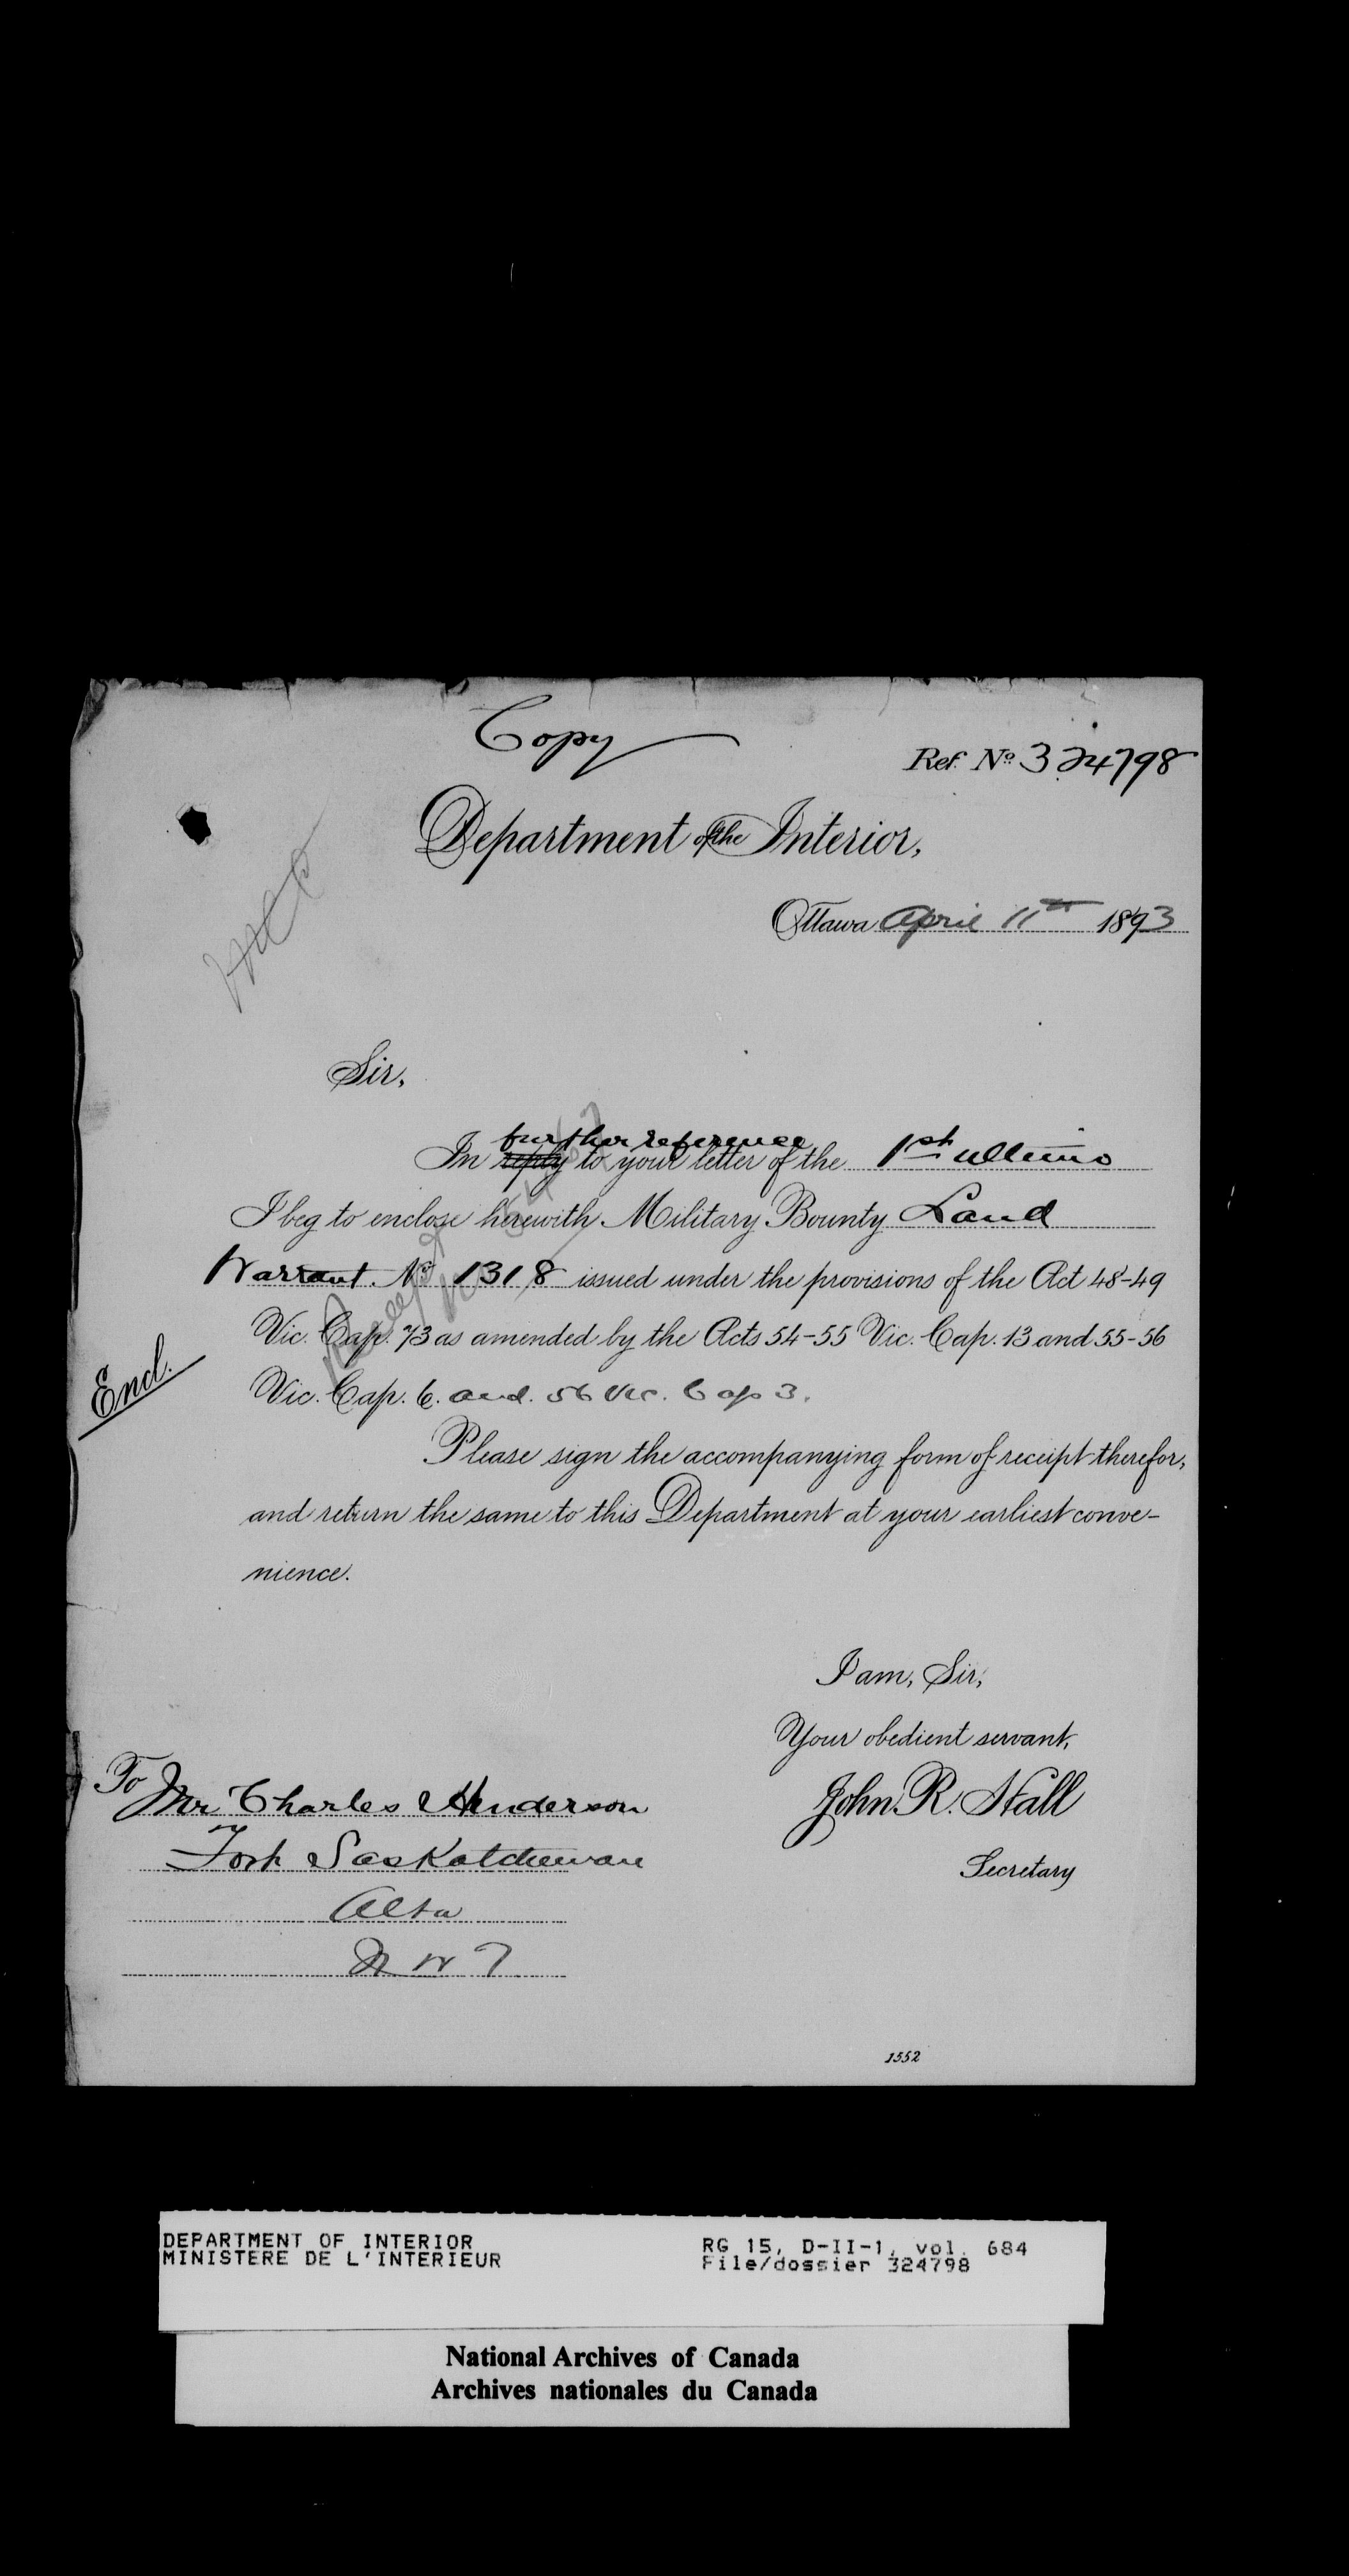 Copy
Ref. No. 324798
Department of the Interior,
Ottawa April 11th 1893
Sir,
further reference
In reply to your letter of the 1st ultimo
I beg to enclose herewith Military Bounty Land
Warrant No 1318 issued under the provisions of the Act 48-49
Vic. Cap. 73 as amended by the Acts 54-55 Vic. Cap. 13 and 55-56
Encl.
Vic. Cap. 6. and 56 Vic. Cap 3.
Please sign the accompanying form of receipt therefor,
and return the same to this Department at your earliest conve-
nience.
I am, Sir,
Your obedient servant,
John R. Hall
Secretary
To Mr Charles Henderson
Fort Saskatchewan
Alta
N W T
1552
DEPARTMENT OF INTERIOR
MINISTERE DE L'INTERIEUR
RG 15, D-II-1, vol. 684
File/dossier 324798
National Archives of Canada
Archives nationales du Canada